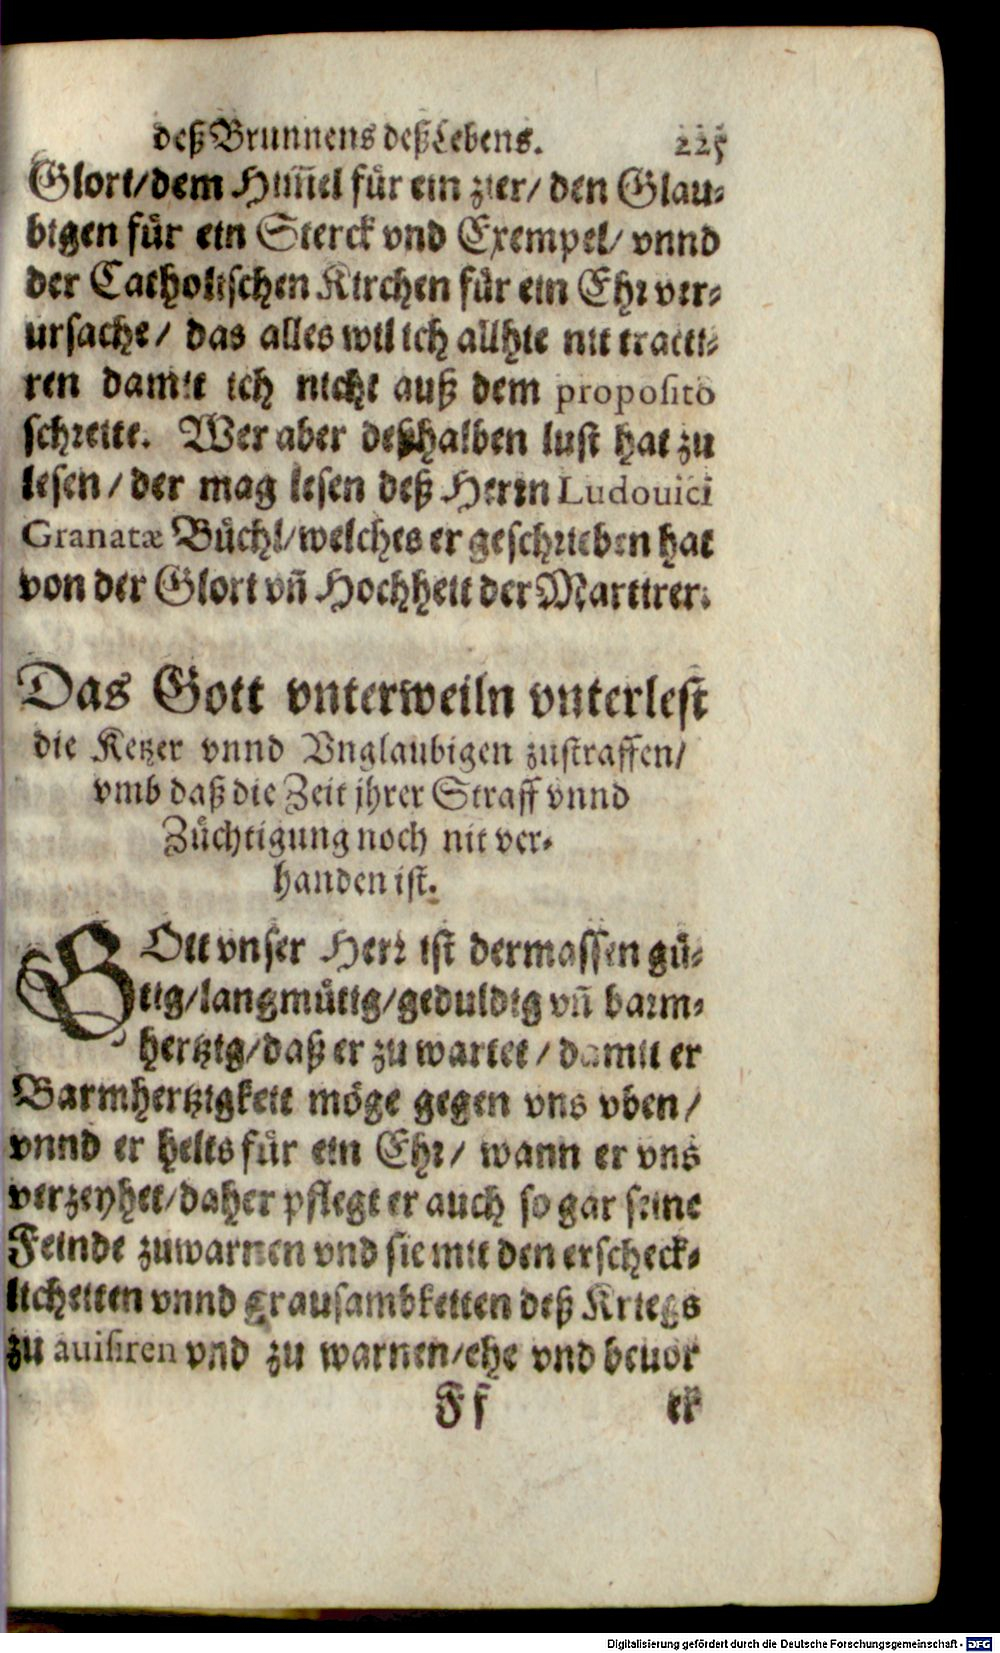 deß Brunnens deß Lebens. 225
Glori/dem Him̃el für ein zier/ den Glau-
bigen für ein Sterck vnd Exempel/ vnnd
der Catholischen Kirchen für ein Ehr ver-
ursache/ das alles wil ich allhie nit tracti-
ren damit ich nicht auß dem proposito
schreite. Wer aber deßhalben lust hat zu
lesen/ der mag lesen deß Herrn Ludouici
Granatæ Büchl/welches er geschrieben hat
von der Glori vñ Hochheit der Martirer.
Das Gott vnterweiln vnterlest
die Ketzer vnnd Vnglaubigen zustraffen/
vmb daß die Zeit jhrer Straff vnnd
Züchtigung noch nit ver-
handen ist.
GOtt vnser Herr ist dermassen gü-
tig/langmütig/geduldig vñ barm-
hertzig/daß er zu wartet/ damit er
Barmhertzigkeit möge gegen vns vben/
vnnd er helts für ein Ehr/ wann er vns
verzeyhet/daher pflegt er auch so gar seine
Feinde zuwarnen vnd sie mit den erscheck-
licheiten vnnd grausambkeiten deß Kriegs
zu auisiren vnd zu warnen/ehe vnd beuor
Ff er